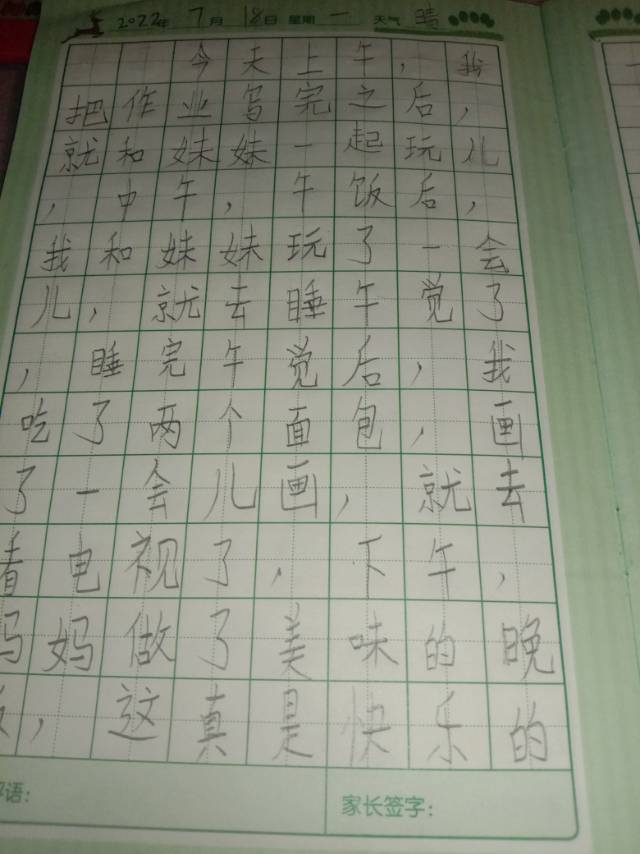 2022年 7月 18日 星期 一 天气 晴
今天上午，我
把作业写完之后，
就和妹妹一起玩儿
，中午，午饭后，
我和妹妹玩了一会
儿，就去睡午觉了
，睡完午觉后，我
吃了两个面包，画
了一会儿画，就去
看电视了，下午，
妈妈做了美味的晚
饭，这真是快乐的
评语：
家长签字：